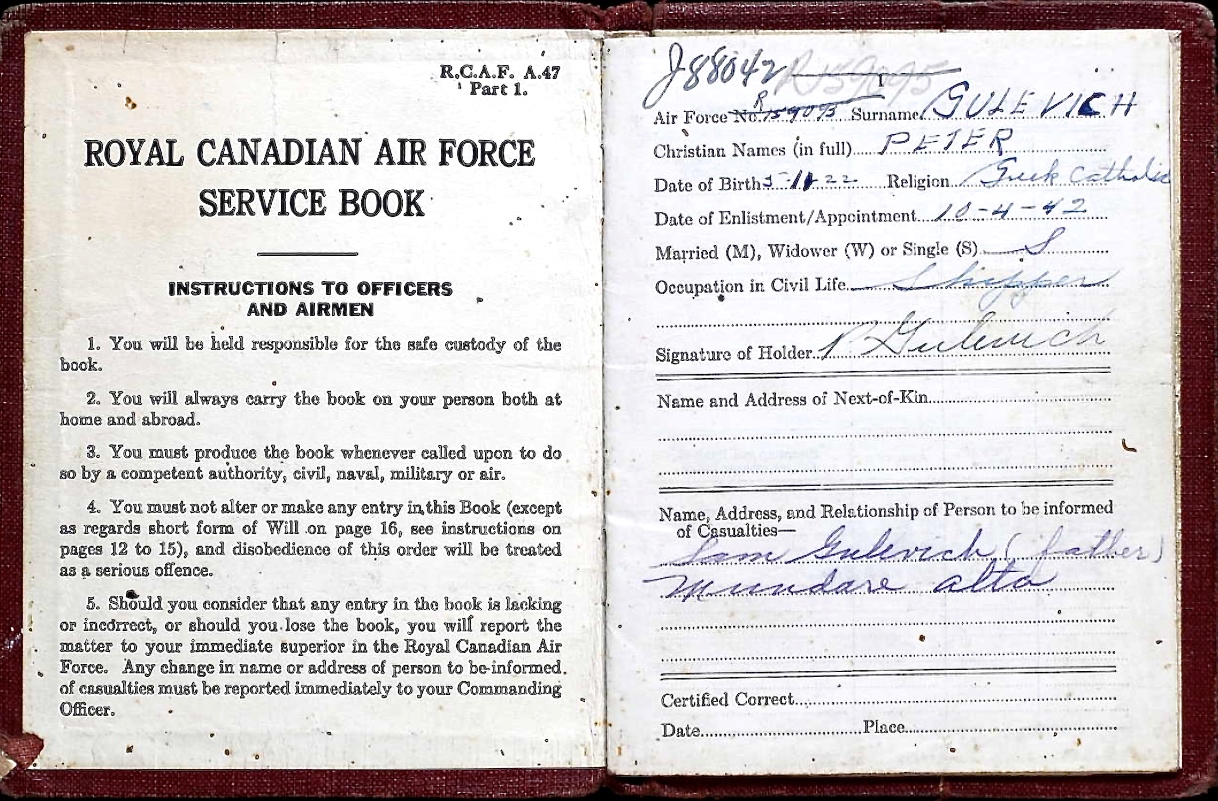 R.C.A.F. A.47
Part 1.
ROYAL CANADIAN AIR FORCE
SERVICE BOOK
INSTRUCTIONS TO OFFICERS
AND AIRMEN
1. You will be held responsible for the safe custody of the
book.
2. You will always carry the book on your person both at
home and abroad.
3. You must produce the book whenever called upon to do
so by a competent authority, civil, naval, military or air.
4. You must not alter or make any entry in this Book (except
as regards short form of Will on page 16, see instructions on
pages 12 to 15), and disobedience of this order will be treated
as a serious offence.
5. Should you consider that any entry in the book is lacking
or incorrect, or should you lose the book, you will report the
matter to your immediate superior in the Royal Canadian Air
Force. Any change in name or address of person to be informed
of casualties must be reported immediately to your Commanding
Officer.
J88042 R159095
Air Force No. R159095 Surname GULEVICH
Christian Names (in full) PETER
Date of Birth 5-11-22 Religion Greek Catholic
Date of Enlistment/Appointment 10-4-42
Married (M), Widower (W) or Single (S) S
Occupation in Civil Life Shipper
Signature of Holder P Gulevich
Name and Address of Next-of-Kin
Name, Address, and Relationship of Person to be informed
of Casualties—
Sam Gulevich (father)
Mundare alta
Certified Correct
Date Place